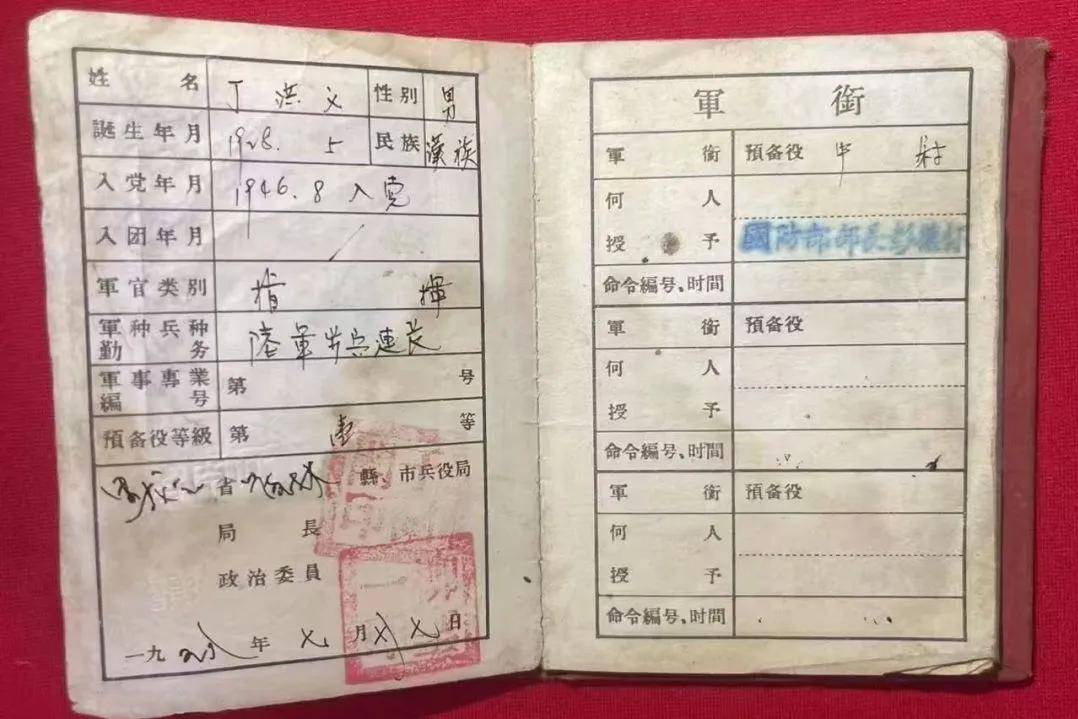 姓名 丁洪文 性别 男
誕生年月 1928. 5 民族 漢族
入党年月 1946.8 入党
入团年月
軍官类别 指揮
軍种兵种勤务 陸軍步兵連長
軍事專業編号 第 号
預备役等級 第 壹 等
省 縣 市兵役局
局長
政治委員
一九 年 七 月 七 日
軍銜
軍銜 預备役 中尉
何人
授予 國防部部長彭德怀
命令編号、时間
軍銜 預备役
何人
授予
命令編号、时間
軍銜 預备役
何人
授予
命令編号、时間